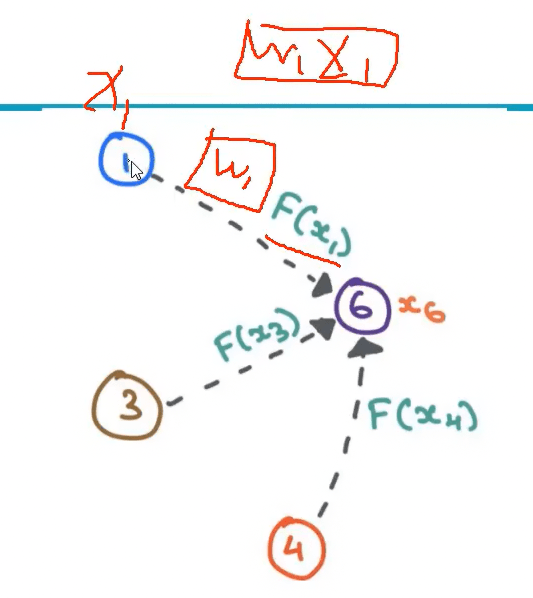 W₁ X₁
X₁
1
W₁
F(x₁)
6
x₆
F(x₃)
3
F(x₄)
4